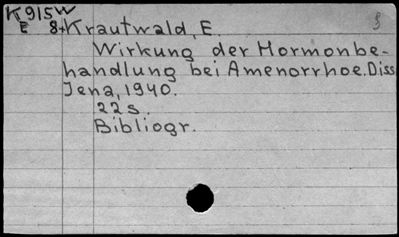 K915W
E 8+ Krautwald, E. §
Wirkung der Hormonbe-
handlung bei Amenorrhoe. Diss
Jena, 1940.
22 s.
Bibliogr.